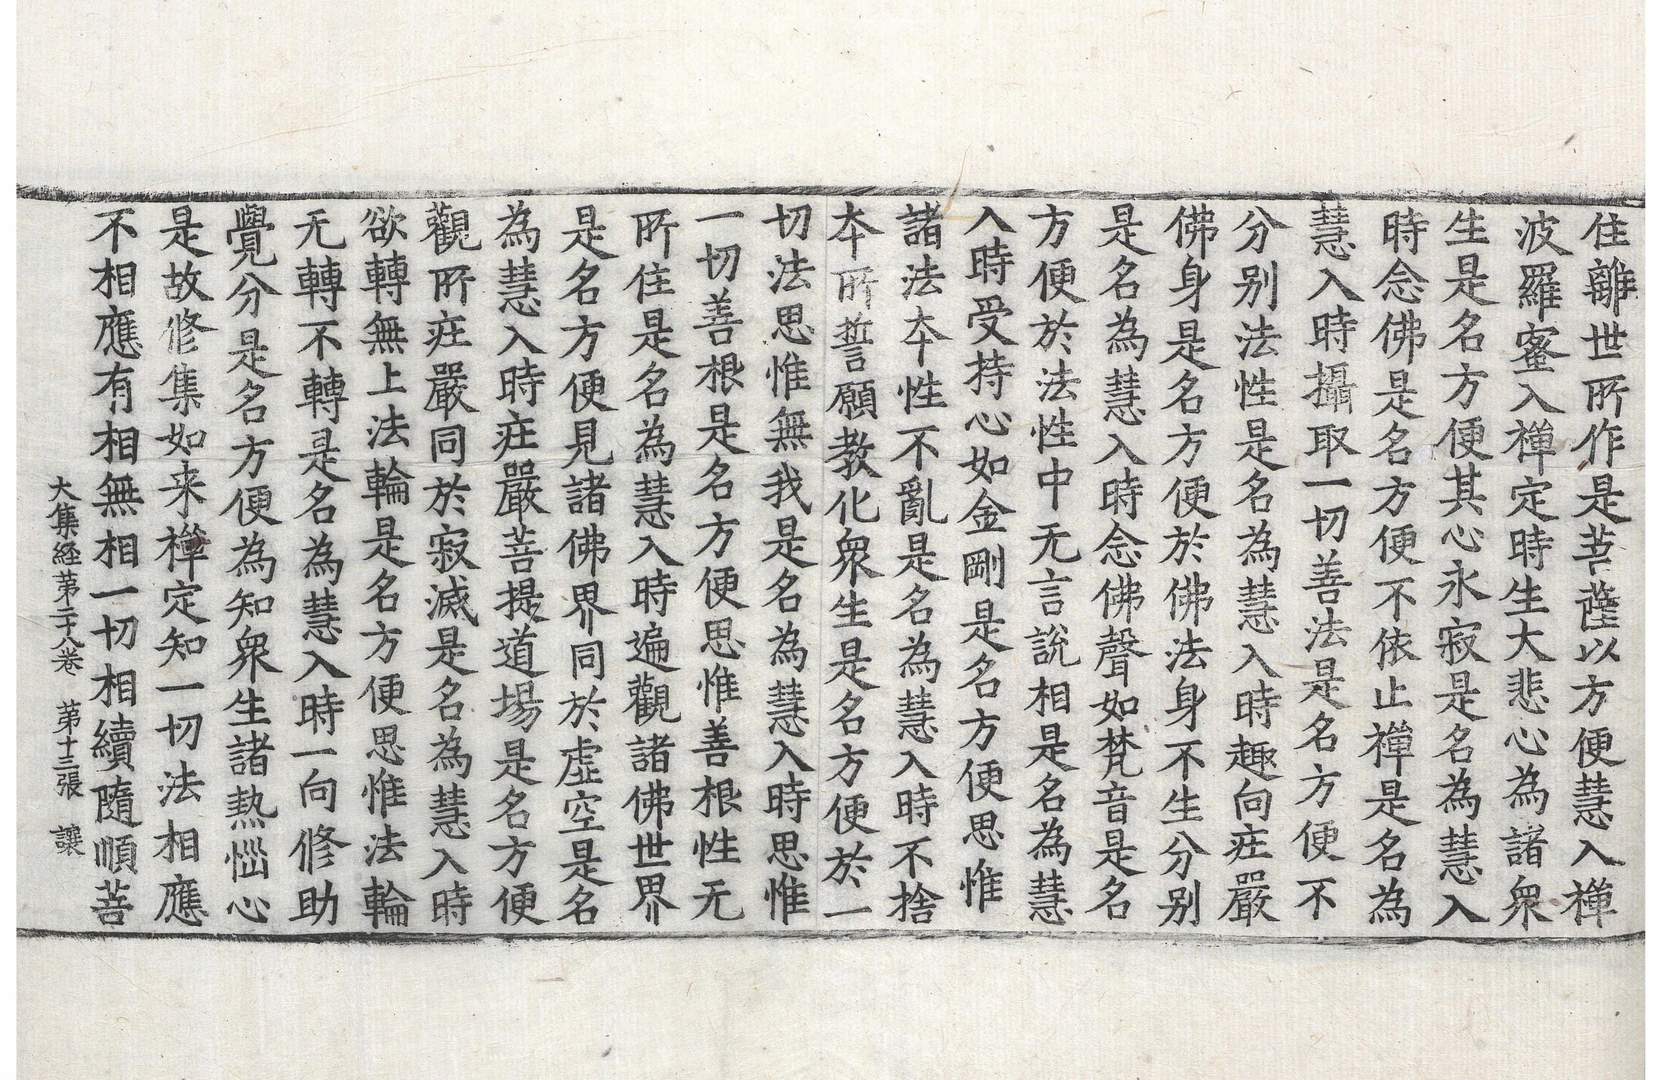 住離世所作是菩薩以方便慧入禪
波羅蜜入禪定時生大悲心為諸衆
生是名方便其心永寂是名為慧入
時念佛是名方便不依止禪是名為
慧入時攝取一切善法是名方便不
分别法性是名為慧入時趣向疘嚴
佛身是名方便於佛法身不生分别
是名為慧入時念佛聲如梵音是名
方便於法性中无言說相是名為慧
入時受持心如金剛是名方便思惟
諸法夲性不亂是名為慧入時不捨
夲所誓願教化衆生是名方便於一
切法思惟無我是名為慧入時思惟
一切善根是名方便思惟善根性无
所住是名為慧入時遍觀諸佛世界
是名方便見諸佛界同於虛空是名
為慧入時疘嚴菩提道場是名方便
觀所疘嚴同於寂滅是名為慧入時
欲轉無上法輪是名方便思惟法輪
无轉不轉是名為慧入時一向修助
覺分是名方便為知衆生諸熱惱心
是故修集如来禪定知一切法相應
不相應有相無相一切相續隨順菩
大集経苐二十八卷 苐十三張 讓